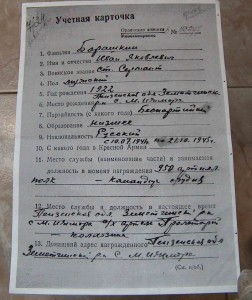 Учетная карточка
1. Фамилия Барашкин
2. Имя и отчество Иван Яковлевич
3. Воинское звание ст. Сержант
4. Пол мужской
5. Год рождения 1922
Место рождения
7. Партийность (с какого года) Беспартийный
8. Образование низшее
9. Национальность Русский
10. С какого года в Красной Армии с 10.07.1941 по 21.10.1945 г.
11. Место службы (наименование части) и занимаемая
должность в момент награждения 950 артил
полк - командир орудия
12. Место службы и должность в настоящее время
Пензенская обл Земетчинский р-н
колхозник
13. Домашний адрес награжденного Пензенская обл
Земетчинский р-н с.
(См. н/об.)